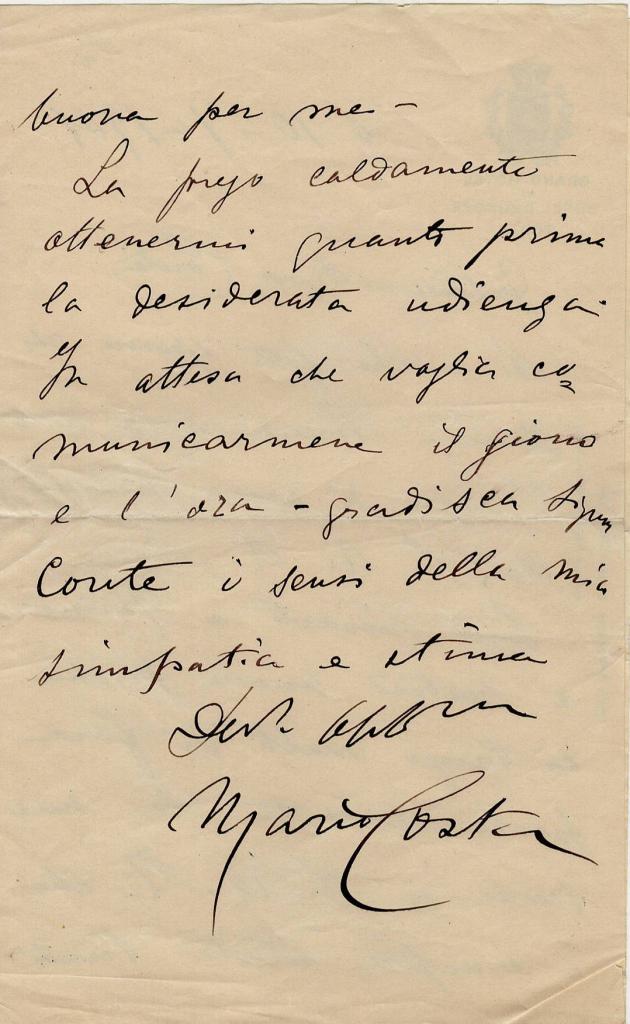 buona per me -
La prego caldamente
ottenermi quanto prima
la desiderata udienza.
In attesa che voglia co=
municarmene il giorno
e l'ora - gradisca Signor
Conte i sensi della mia
simpatia e stima
Mario Costa